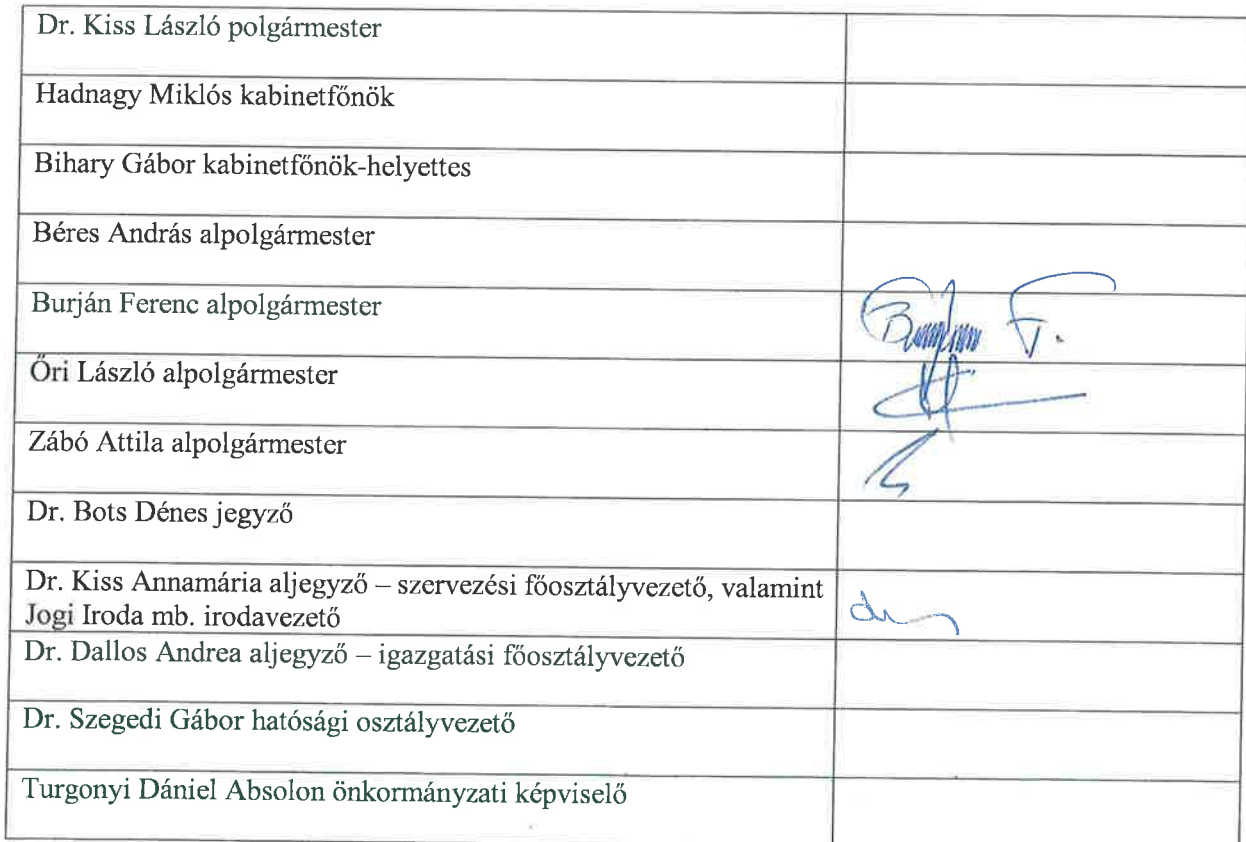 Dr. Kiss László polgármester
Hadnagy Miklós kabinetfőnök
Bihary Gábor kabinetfőnök-helyettes
Béres András alpolgármester
Burján Ferenc alpolgármester
Őri László alpolgármester
Zábó Attila alpolgármester
Dr. Bots Dénes jegyző
Dr. Kiss Annamária aljegyző – szervezési főosztályvezető, valamint
Jogi Iroda mb. irodavezető
Dr. Dallos Andrea aljegyző – igazgatási főosztályvezető
Dr. Szegedi Gábor hatósági osztályvezető
Turgonyi Dániel Absolon önkormányzati képviselő